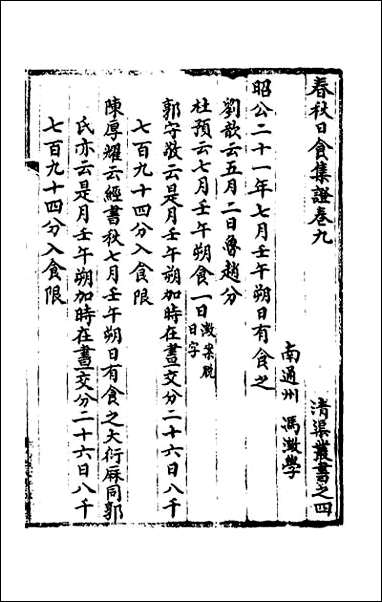 春秋日食集證卷九
清渠叢書之四
南通州 馮澂學
昭公二十一年七月壬午朔日有食之
劉歆云五月二日魯趙分
杜預云七月壬午朔食一日澂案脫日字
郭守敬云是月壬午朔加時在晝交分二十六日八千
七百九十四分入食限
陳厚耀云經書秋七月壬午朔日有食之大衍厤同郭
氏亦云是月壬午朔加時在晝交分二十六日八千
七百九十四分入食限